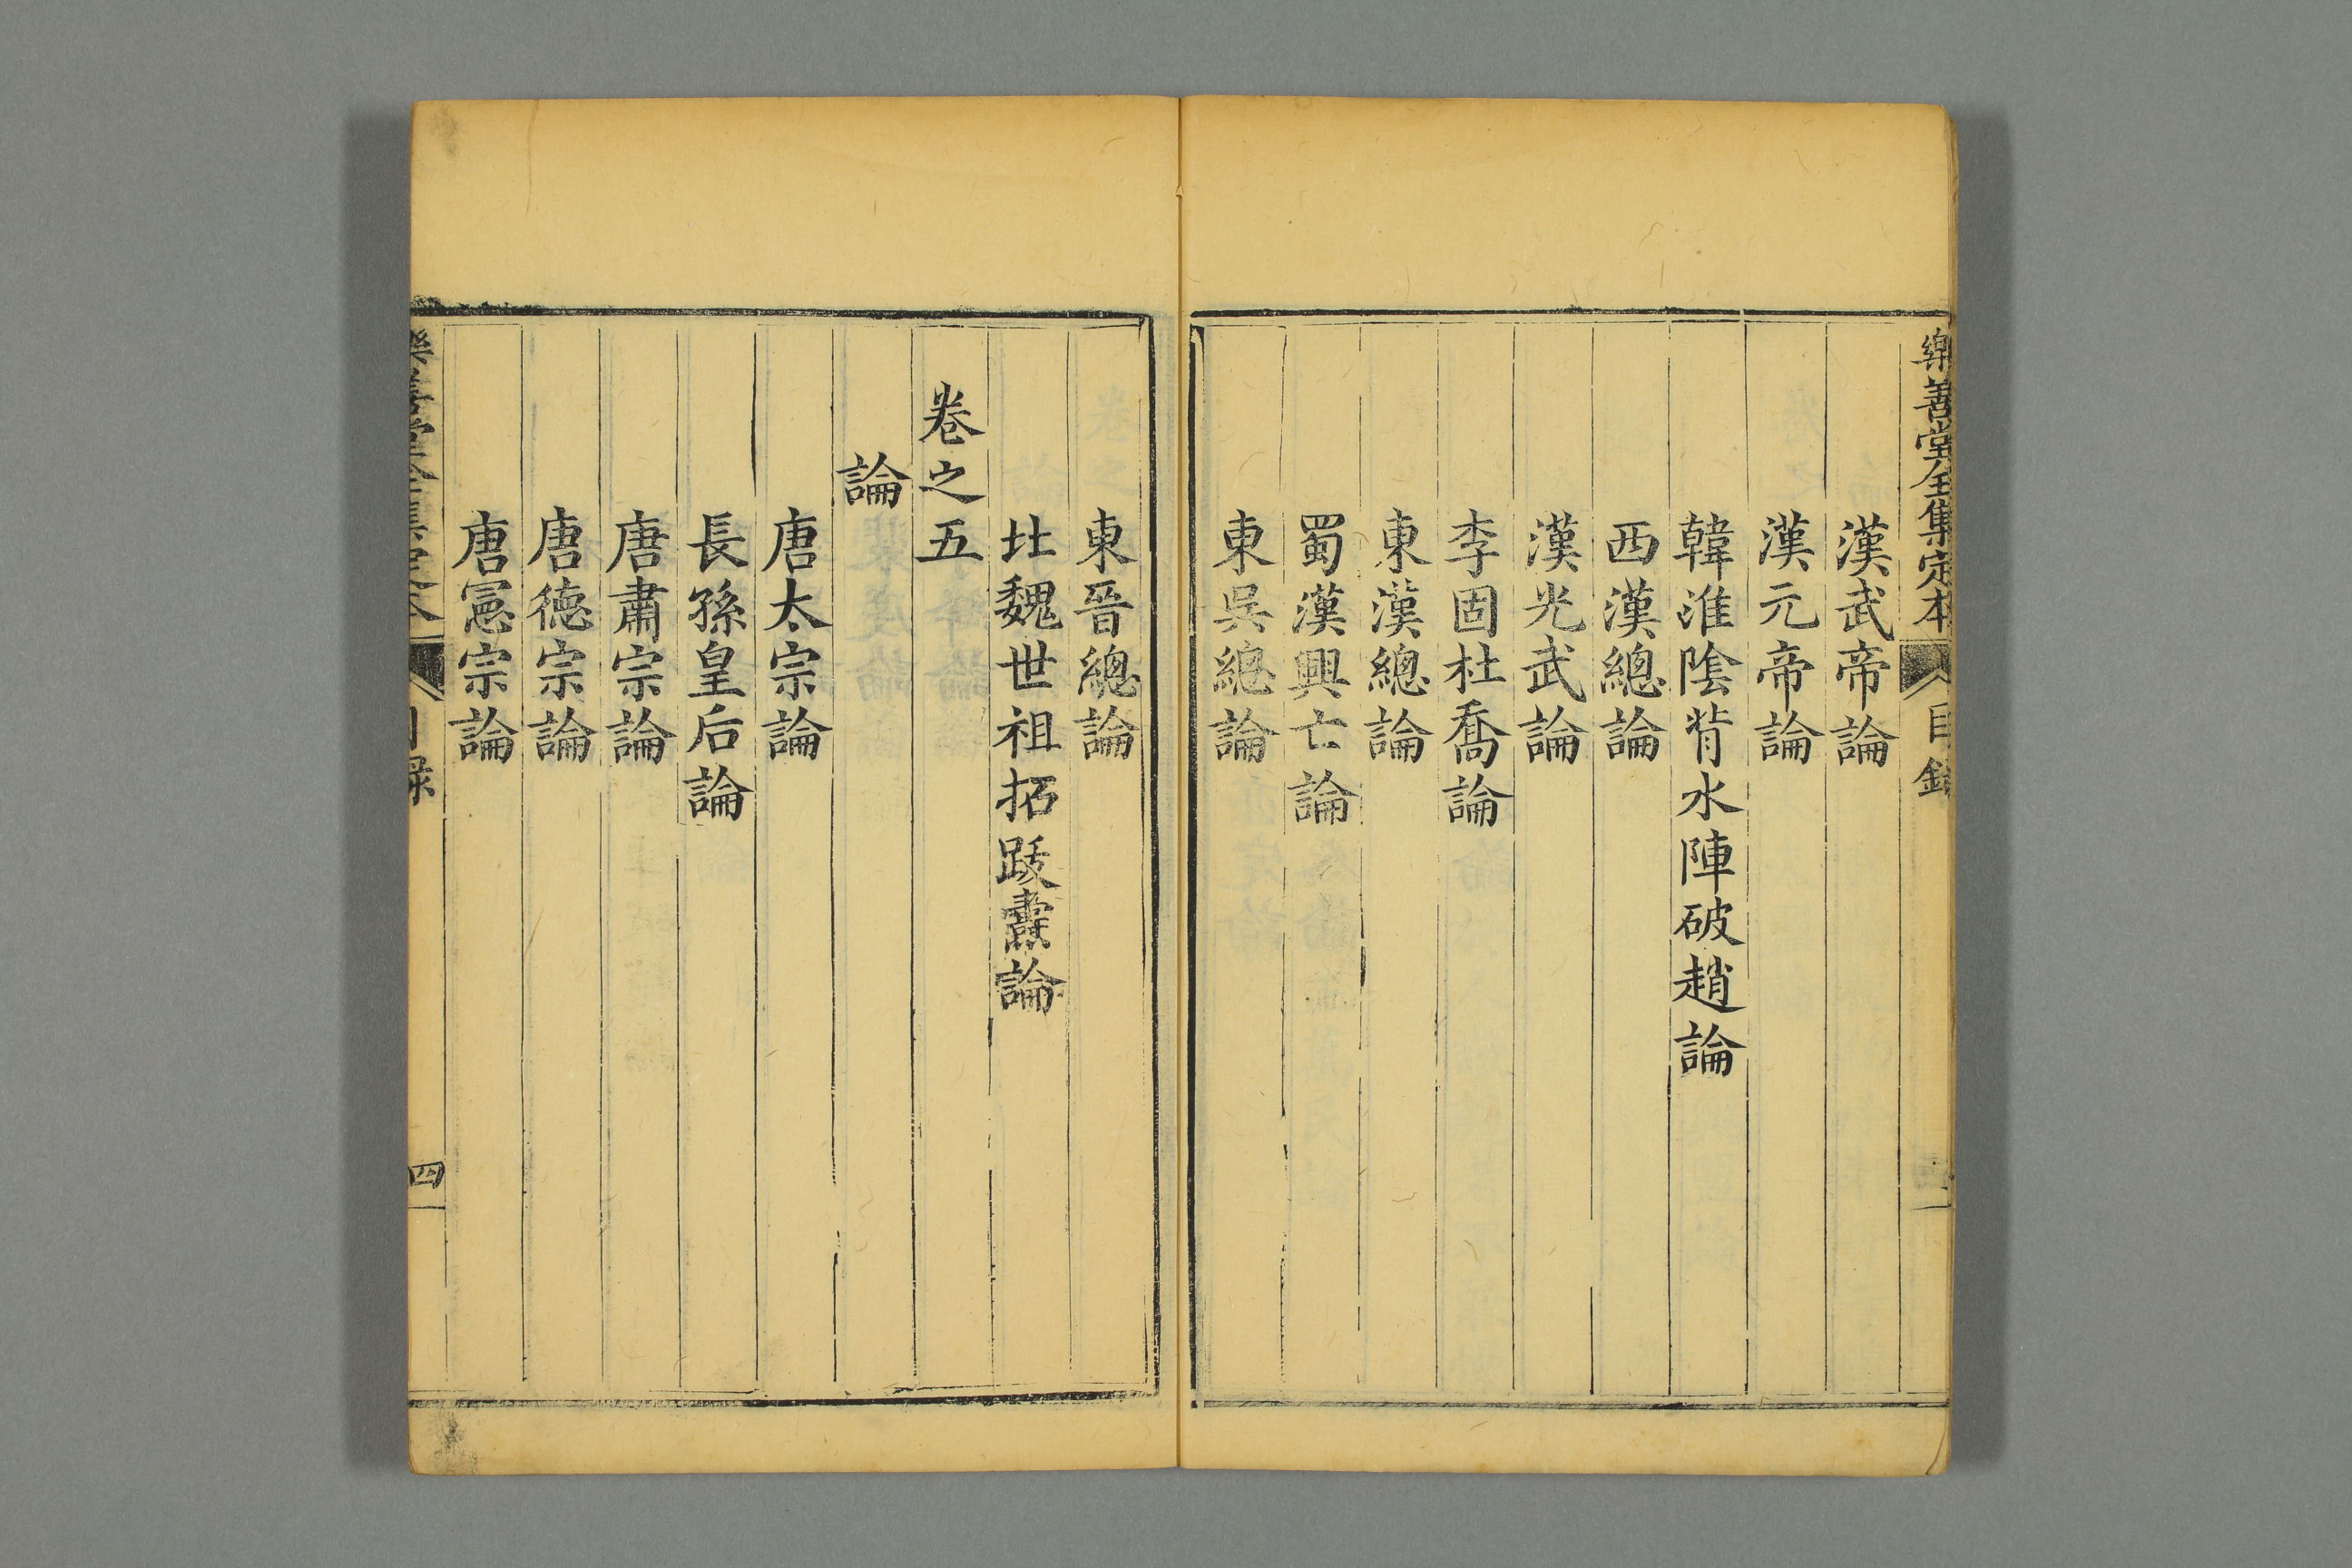 樂善堂全集定本
目錄
漢武帝論
漢元帝論
韓淮陰背水陣破趙論
西漢總論
漢光武論
李固杜喬論
東漢總論
蜀漢興亡論
東吳總論
東晉總論
北魏世祖拓跋燾論
卷之五
論
唐太宗論
長孫皇后論
唐肅宗論
唐德宗論
唐憲宗論
目錄
四